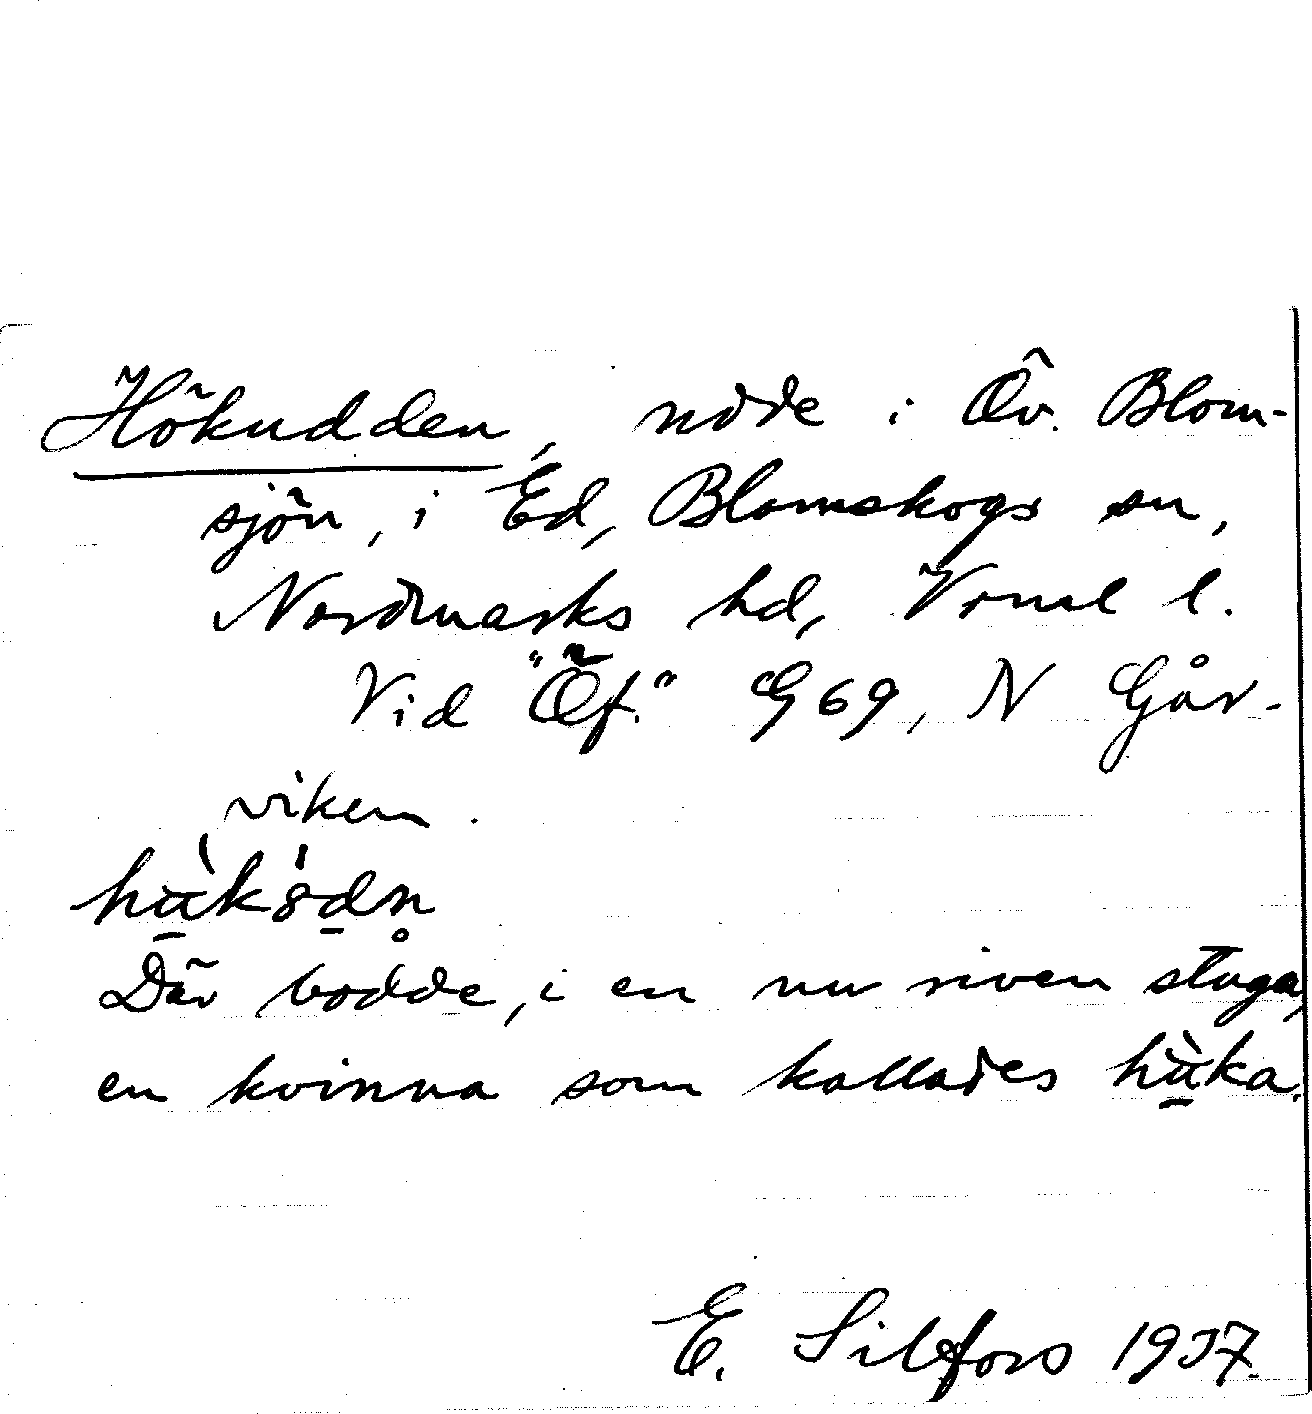 Hökudden, udde i Öv. Blom-
sjön, i Ed, Blomskogs sn,
Nordmarks hd, Vrml l.
Vid "Öf." G 69, N Går-
viken.
Där bodde, i en nu riven stuga,
en kvinna som kallades hὰ̱ka.
E. Silfors 1937.